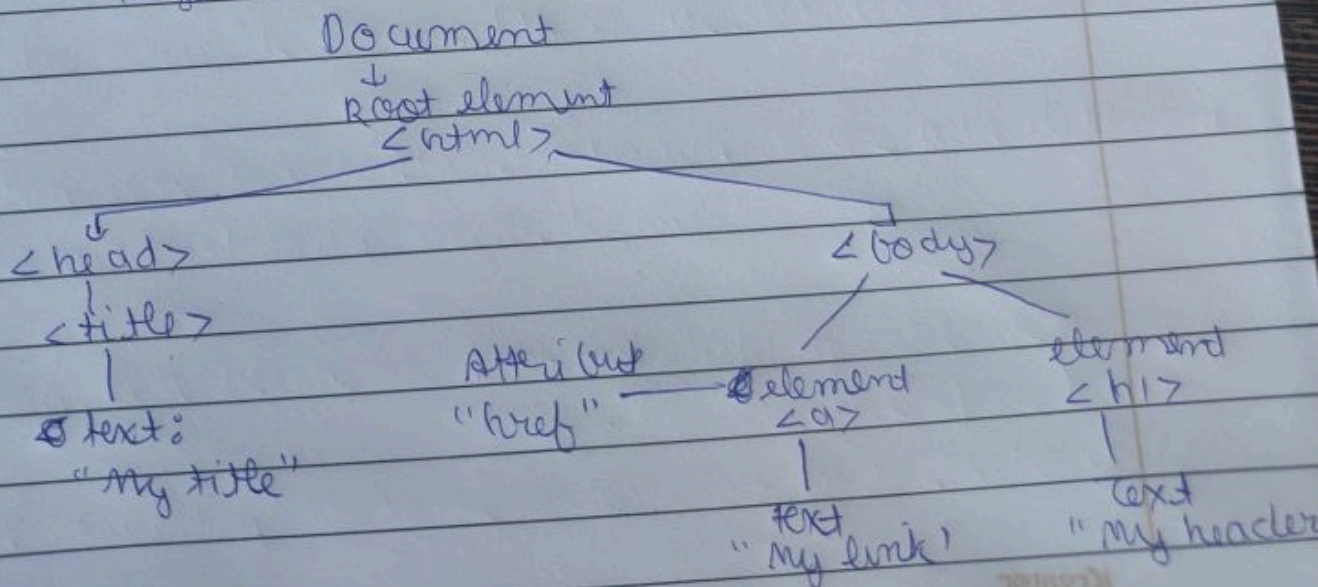 Document
↓
Root element
<html>
<head>
<body>
<title>
text:
"My title"
Attribut
"href"
element
<a>
text
"My link'
element
<h1>
text
"My header